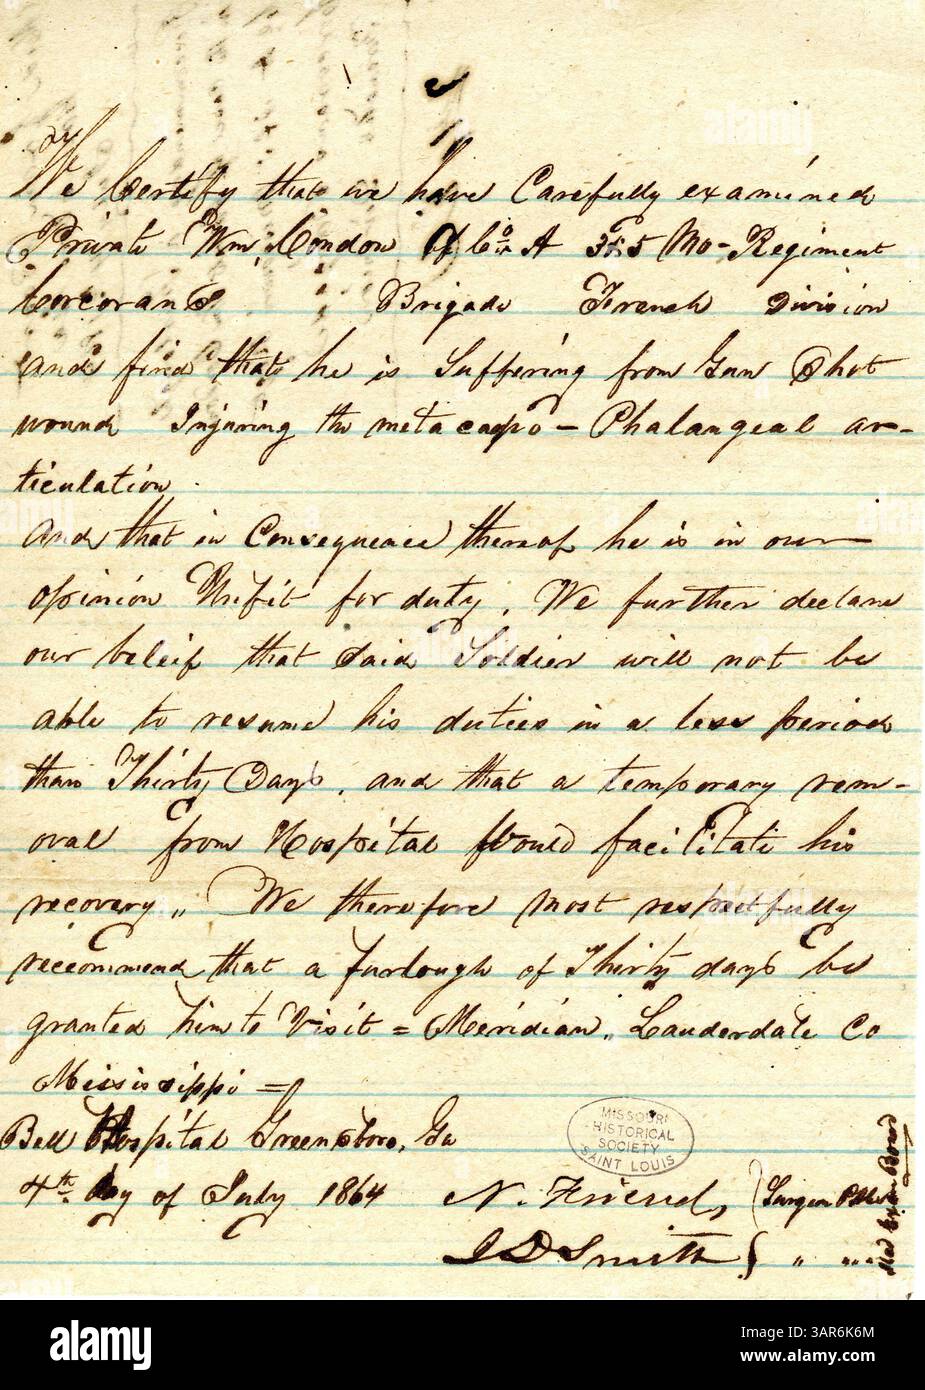 We Certify that we have Carefully examined
Private Wm. Condon Of Co. A 3 & 5 Mo- Regiment
Corcorans Brigade French Division
and find that he is Suffering from Gun Shot
wound Injuring the metacarpo - Phalangeal ar-
ticulation
And that in Consequence thereof he is in our
opinion Unfit for duty. We further declare
our beleif that said Soldier will not be
able to resume his duties in a less period
than Thirty Days. and that a temporary rem-
oval from Hospital Would facilitate his
recovery,, We therefore most respectfully
reccommend that a furlough of Thirty days be
granted him to Visit = Meridian,, Lauderdale Co
Mississippi =
Bell Hospital Greensboro, Ga
4th Day of July 1864 N. Friend, Surgeon
J D Smith } " "
Med Exam Board
MISSOURI
HISTORICAL
SOCIETY
SAINT LOUIS
alamy
Image ID: 3AR6K6M
www.alamy.com